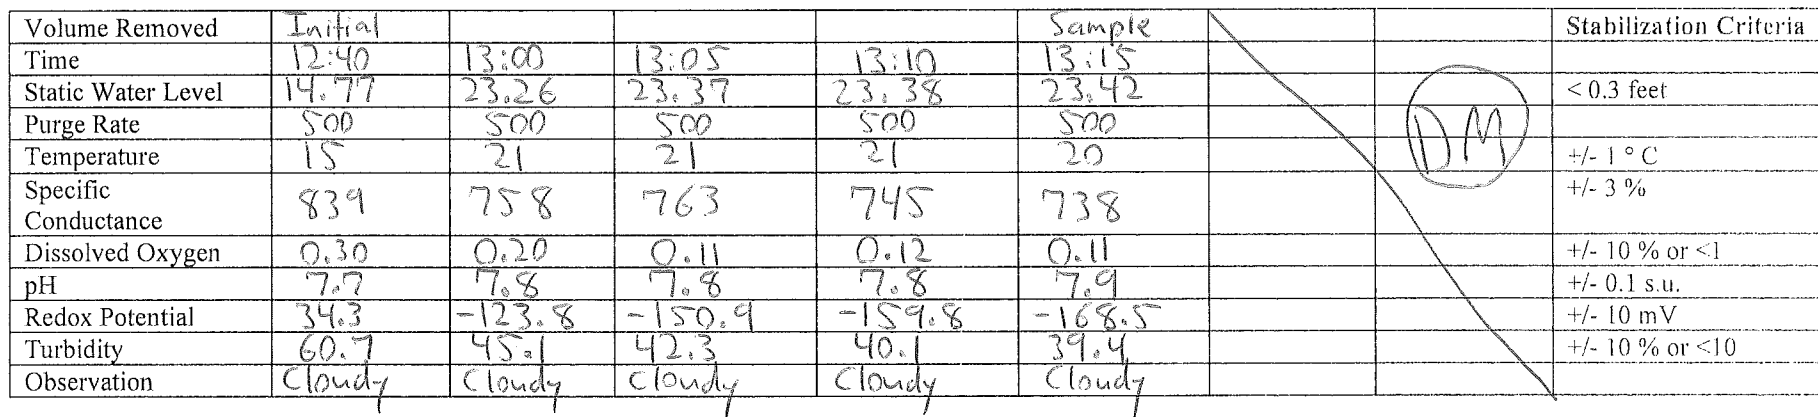 Volume Removed Initial Sample Stabilization Criteria
Time 12:40 13:00 13:05 13:10 13:15
Static Water Level 14.77 23.26 23.37 23.38 23.42 < 0.3 feet
Purge Rate 500 500 500 500 500
DM
Temperature 15 21 21 21 20 +/- 1 ° C
Specific
Conductance 839 758 763 745 738 +/- 3 %
Dissolved Oxygen 0.30 0.20 0.11 0.12 0.11 +/- 10 % or <1
pH 7.7 7.8 7.8 7.8 7.9 +/- 0.1 s.u.
Redox Potential 34.3 -123.8 -150.9 -159.8 -168.5 +/- 10 mV
Turbidity 60.7 45.1 42.3 40.1 39.4 +/- 10 % or <10
Observation Cloudy Cloudy Cloudy Cloudy Cloudy